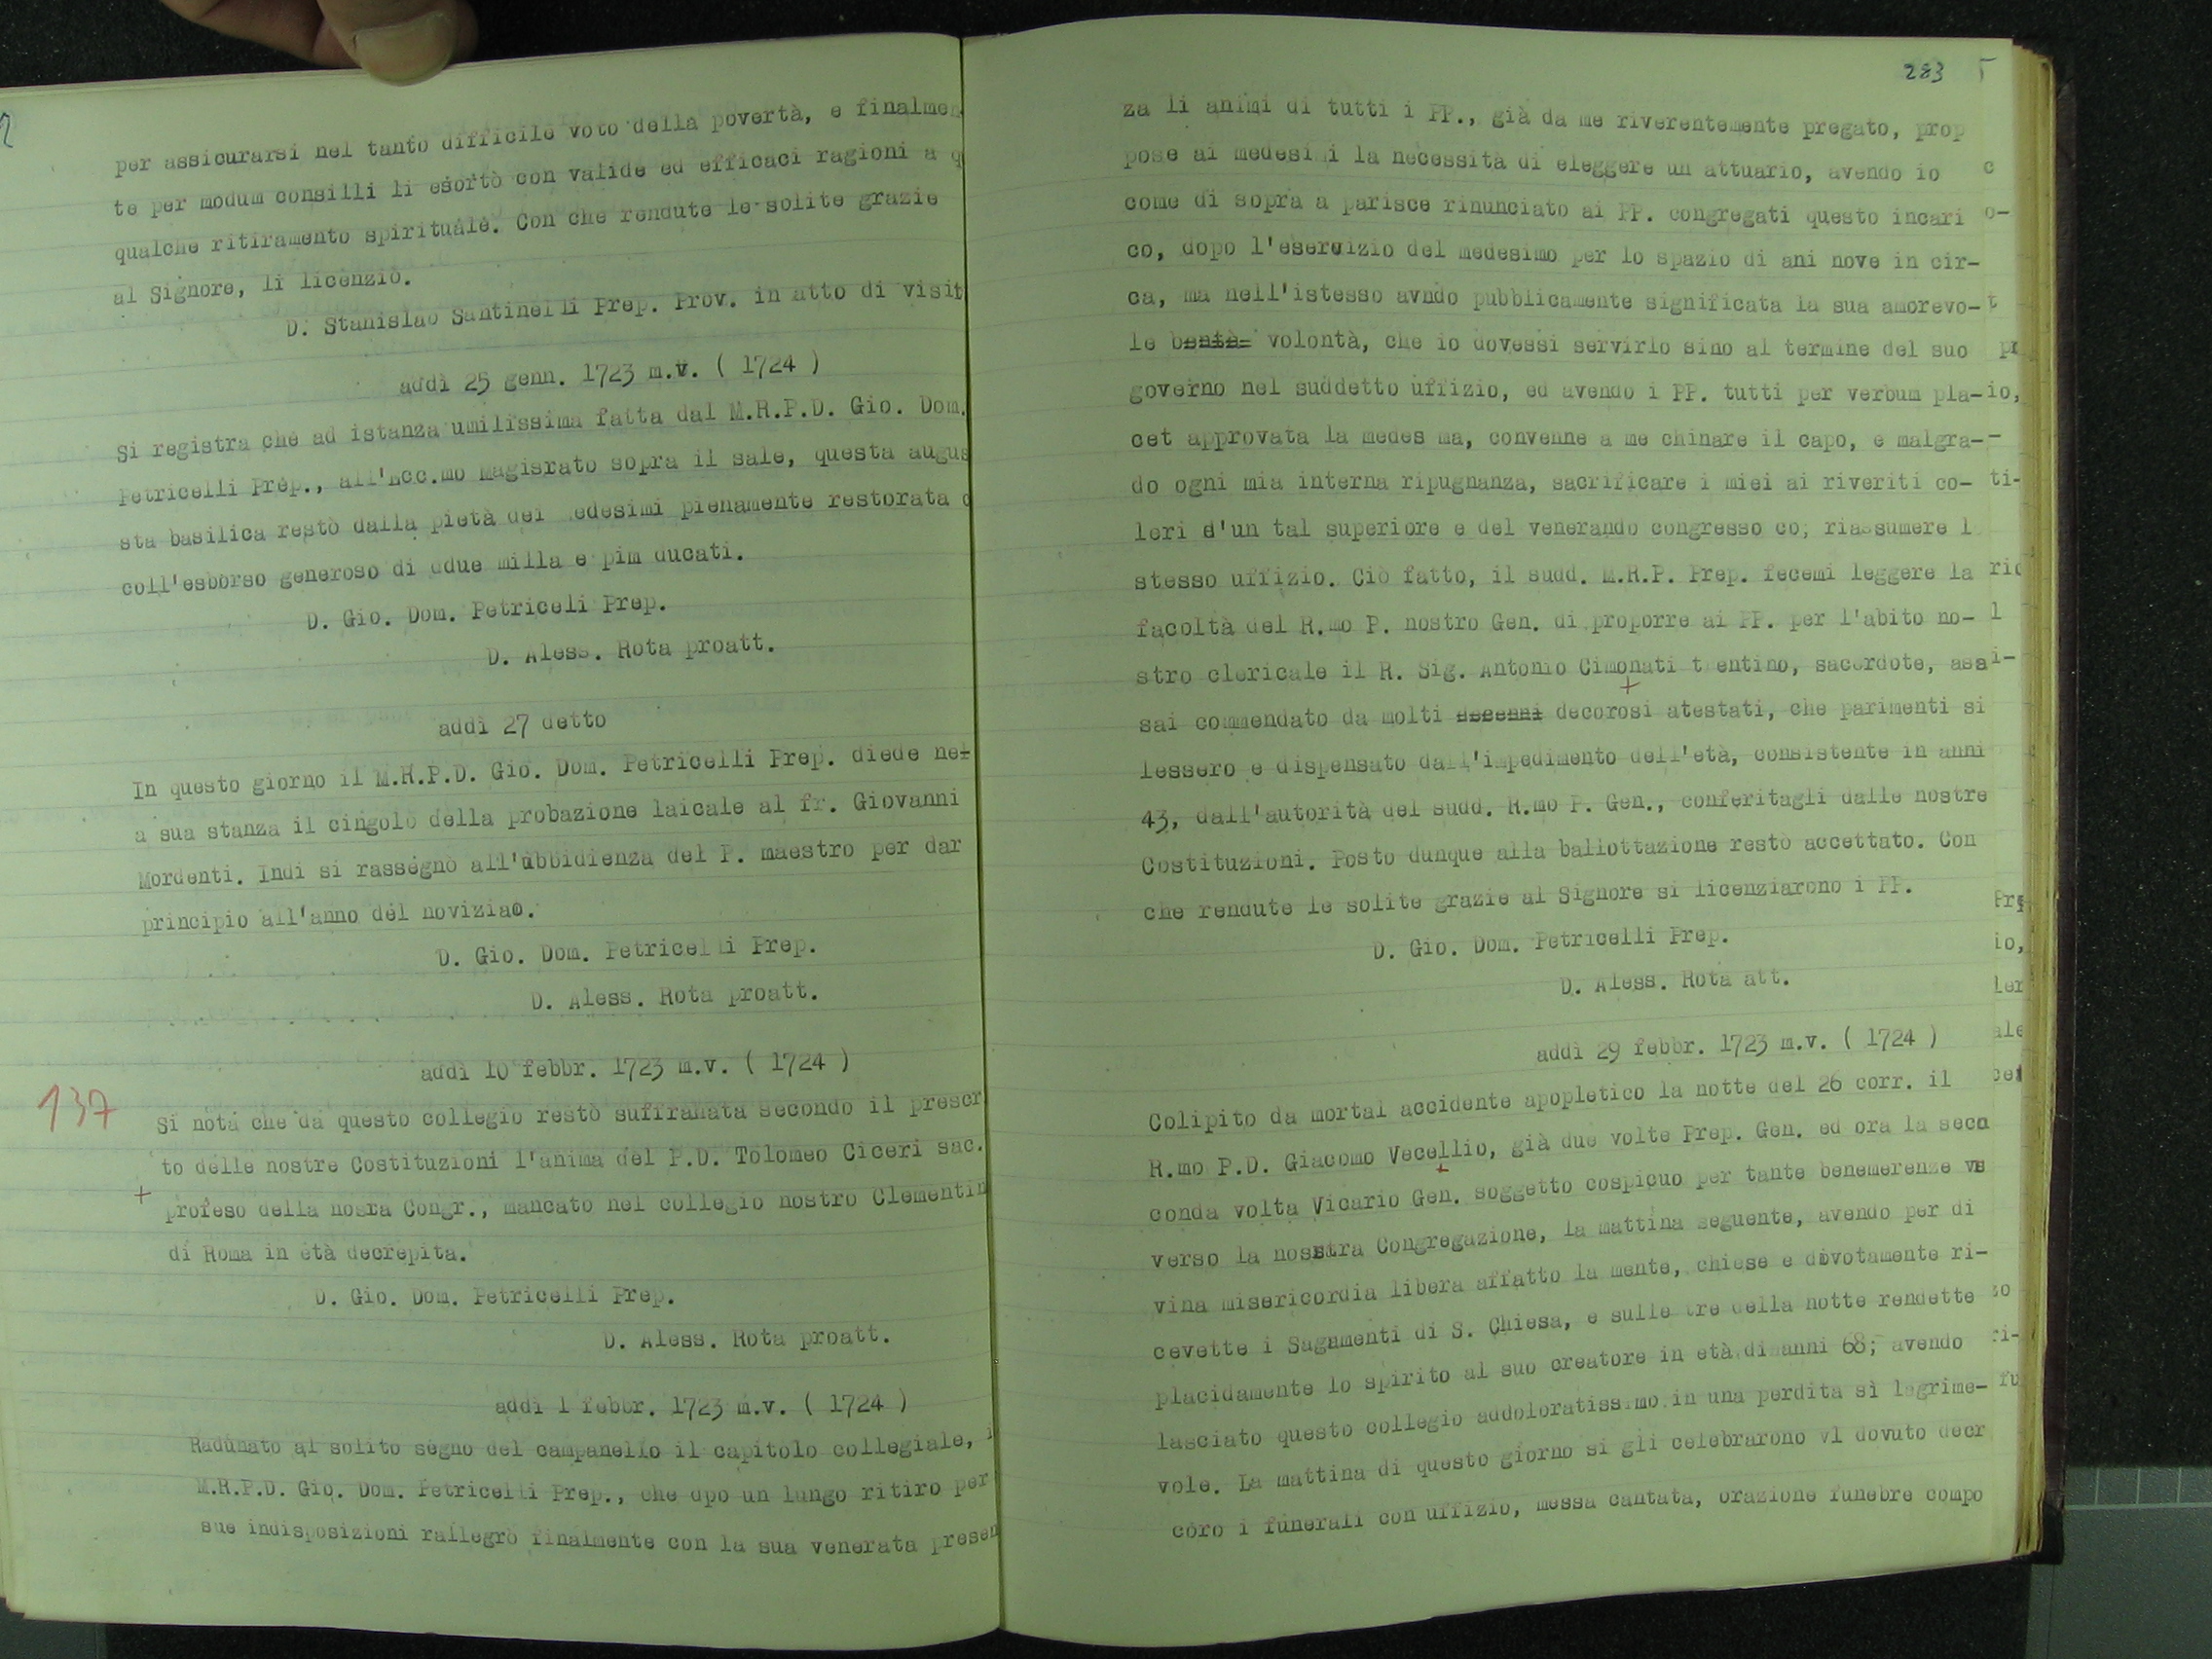 per assicurarsi nel tanto difficile voto della povertà, e finalmen
te per modum consilli li esortò con valide ed efficaci ragioni a q
qualche ritiramento spirituale. Con che rendute le solite grazie
al Signore, li licenziò.
D. Stanislao Santinelli Prep. Prov. in atto di visit
addì 25 genn. 1723 m.v. ( 1724 )
Si registra che ad istanza umilissima fatta dal M.R.P.D. Gio. Dom.
Petricelli Prep., all'Ecc.mo Magisrato sopra il sale, questa augus
sta basilica restò dalla pietà dei edesimi pienamente restorata
coll'esborso generoso di udue milla e pim ducati.
D. Gio. Dom. Petriceli Prep.
D. Aless. Rota proatt.
addì 27 detto
In questo giorno il M.R.P.D. Gio. Dom. Petricelli Prep. diede nel
a sua stanza il cingolo della probazione laicale al fr. Giovanni
Mordenti. Indi si rassegnò all'ubbidienza del P. maestro per dar
principio all'anno del noviziao.
D. Gio. Dom. Petricelli Prep.
D. Aless. Rota proatt.
addì 10 febbr. 1723 m.v. ( 1724 )
137
Si nota che da questo collegio restò suffranata secondo il prescr
to delle nostre Costituzioni l'anima del P.D. Tolomeo Ciceri sac.
+ profeso della nosra Congr., mancato nel collegio nostro Clementin
di Roma in età decrepita.
D. Gio. Dom. Petricelli Prep.
D. Aless. Rota proatt.
addì 1 febbr. 1723 m.v. ( 1724 )
Radunato al solito segno del campanello il capitolo collegiale, i
M.R.P.D. Gio. Dom. Petricelli Prep., che dpo un lungo ritiro per
sue indisposizioni rallegrò finalmente con la sua venerata presen
283
za li animi di tutti i PP., già da me riverentemente pregato, prop
pose ai medesimi la necessità di eleggere un attuario, avendo io
come di sopra a parisce rinunciato ai PP. congregati questo incari
co, dopo l'esercizio del medesimo per lo spazio di ani nove in cir-
ca, ma nell'istesso avndo pubblicamente significata la sua amorevo-
le volontà, che io dovessi servirlo sino al termine del suo
governo nel suddetto uffizio, ed avendo i PP. tutti per verbum pla-
cet approvata la medes ma, convenne a me chinare il capo, e malgra-
do ogni mia interna ripugnanza, sacrificare i miei ai riveriti co-
leri d'un tal superiore e del venerando congresso co; riassumere l
stesso uffizio. Ciò fatto, il sudd. M.R.P. Prep. fecemi leggere la
facoltà del R.mo P. nostro Gen. di proporre ai PP. per l'abito no-
stro clericale il R. Sig. Antonio Cimonati t entino, sacerdote, asa
+
sai commendato da molti decorosi atestati, che parimenti si
lessero e dispensato dall'impedimento dell'età, consistente in anni
43, dall'autorità del sudd. R.mo P. Gen., conferitagli dalle nostre
Costituzioni. Posto dunque alla ballottazione restò accettato. Con
che rendute le solite grazie al Signore si licenziarono i PP.
D. Gio. Dom. Petricelli Prep.
D. Aless. Rota att.
addì 29 febbr. 1723 m.v. ( 1724 )
Colipito da mortal accidente apopletico la notte del 26 corr. il
R.mo P.D. Giacomo Vecellio, già due volte Prep. Gen. ed ora la seco
+
conda volta Vicario Gen. soggetto cospicuo per tante benemerenze ve
verso la nosstra Congregazione, la mattina seguente, avendo per di
vina misericordia libera affatto la mente, chiese e divotamente ri-
cevette i Sagamenti di S. Chiesa, e sulle tre della notte rendette
placidamente lo spirito al suo creatore in età di anni 68; avendo
lasciato questo collegio addoloratissimo in una perdita sì lagrime-
vole. La mattina di questo giorno si gli celebrarono vl dovuto decr
coro i funerali con uffizio, messa cantata, orazione funebre compo